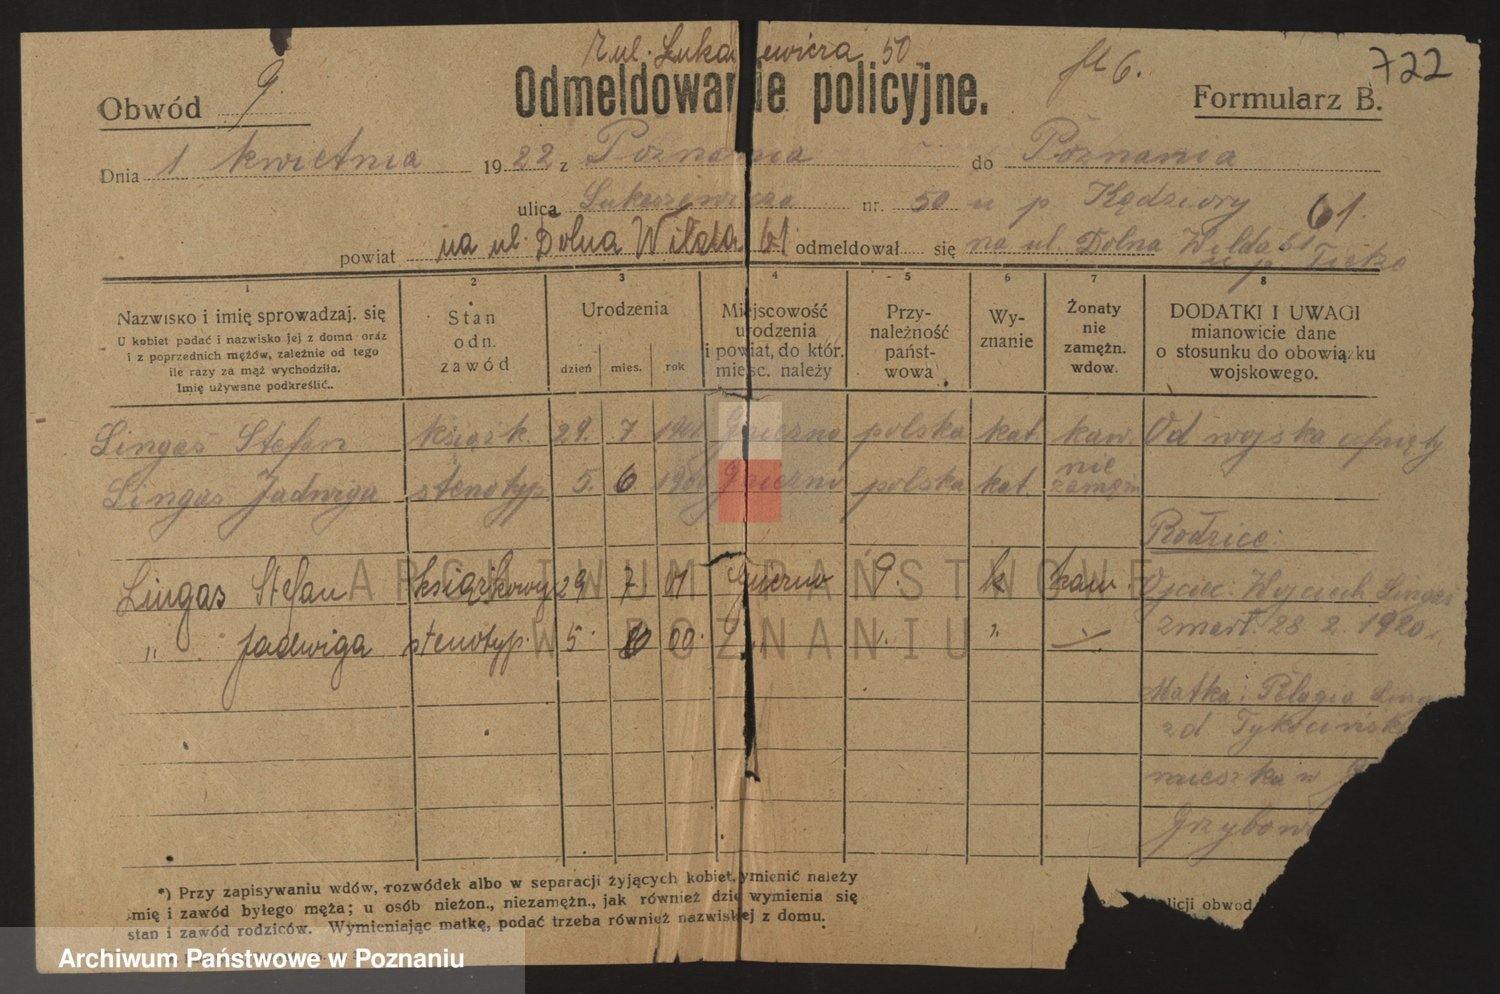 z ul. Łuka ewicza 50
fl 6.
722
Odmeldowanie policyjne.
Obwód 9.
Formularz B.
Dnia 1 kwietnia 1922 z Poznania do Poznania
ulica Łukaszewicza nr. 50 u p. Kędziory 61.
powiat na ul. Dolna Wilda 61 odmeldował się na ul. Dolna Wilda 61
u p.
1 2 3 4 5 6 7 8
Nazwisko i imię sprowadzaj. się
U kobiet podać i nazwisko jej z domu oraz
i z poprzednich mężów, zależnie od tego
ile razy za mąż wychodziła.
Imię używane podkreślić..
Stan
odn.
zawód
Urodzenia
dzień mies. rok
Miejscowość
urodzenia
i powiat, do któr.
miejsc. należy
Przy-
należność
państ-
wowa
Wy-
znanie
Żonaty
nie
zamężn.
wdow.
DODATKI I UWAGI
mianowicie dane
o stosunku do obowiązku
wojskowego.
Lingas Stefan książk. 29. 7 1901 Gniezno polska kat kaw. Od wojska
Lingas Jadwiga stenotyp 5. 6 1900 Gniezno polska kat. nie zamężn
Rodzice:
Lingas Stefan książkowy 29 7. 01 Gniezno p. k kaw. Ojciec. Wojciech Lingas
" Jadwiga stenotyp. 5. 00. " " zmarł. 28 2. 1920
Matka: Pelagia Ling
zd. Tykocińsk
mieszka w
Grzybow
*) Przy zapisywaniu wdów, rozwódek albo w separacji żyjących kobiet, ymienić należy
imię i zawód byłego męża; u osób nieżon., niezamężn., jak również dzie wymienia się
stan i zawód rodziców. Wymieniając matkę, podać trzeba również nazwiskej z domu.
licji obwod.
ARCHIWUM PAŃSTWOWE
W POZNANIU
Archiwum Państwowe w Poznaniu